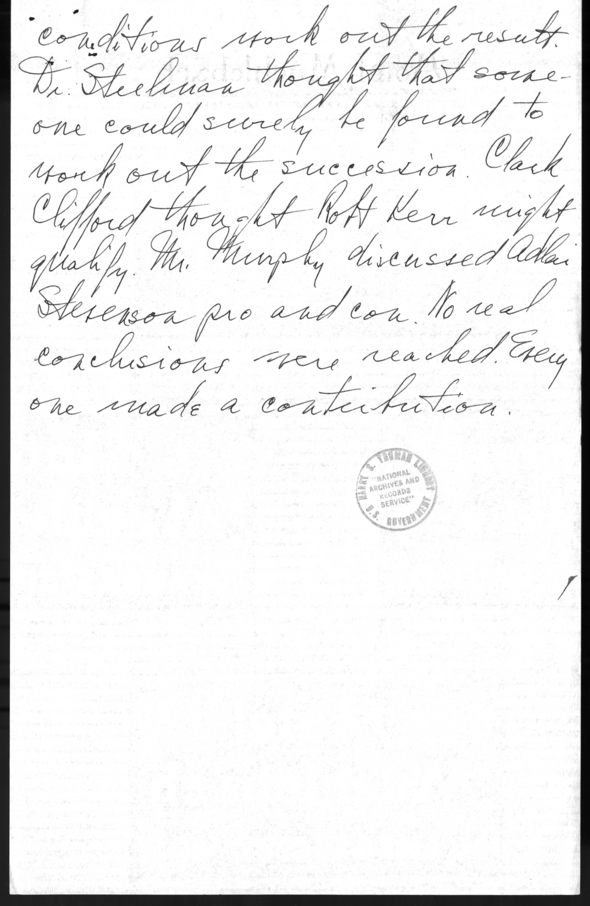 conditions work out the result.
Dr. Steelman thought that some-
one could surely be found to
work out the succession. Clark
Clifford thought Robt Kerr might
qualify. Mr. Murphy discussed Adlai
Stevenson pro and con. No real
conclusions were reached. Every
one made a contribution.
HARRY S. TRUMAN LIBRARY
"NATIONAL
ARCHIVES AND
RECORDS
SERVICE"
U.S. GOVERNMENT